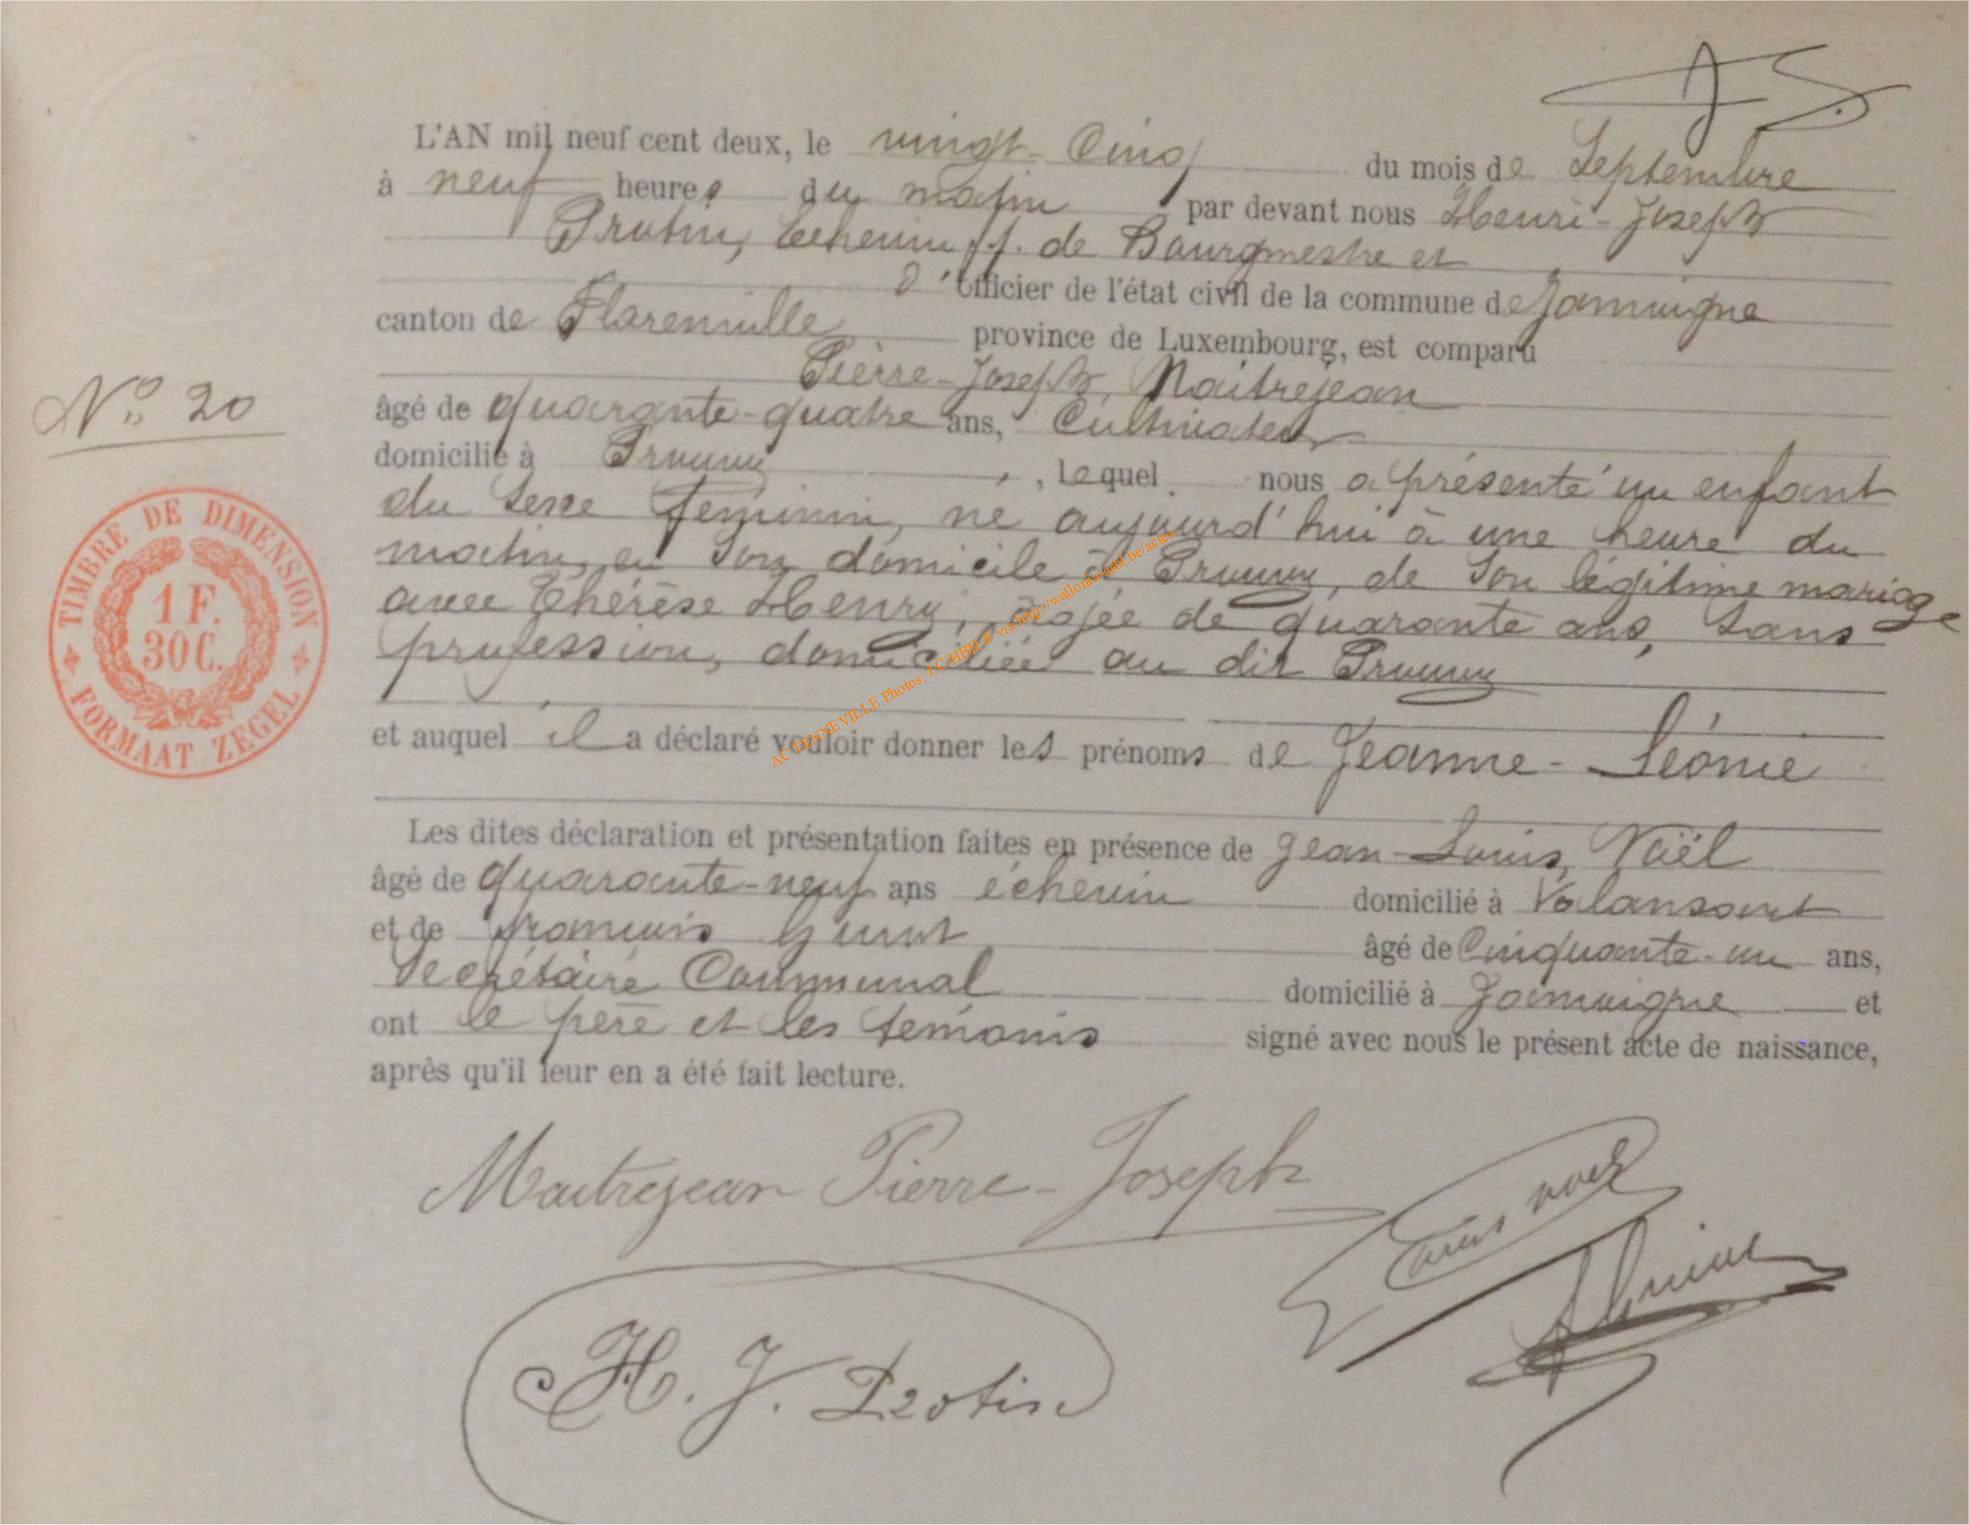 L'AN mil neuf cent deux, le vingt-Cinq du mois de Septembre
à neuf heures du matin par devant nous Henri-Joseph
Protin, Echevin f.f. de Bourgmestre et
d'Officier de l'état civil de la commune de Jamoigne
canton de Florenville province de Luxembourg, est comparu
Pierre-Joseph, Maitrejean
N° 20
âgé de quarante-quatre ans, Cultivateur
domicilié à Prouvy, lequel nous a présenté un enfant
du sexe féminin, né aujourd'hui à une heure du
matin, en son domicile à Prouvy, de son légitime mariage
avec Thérèse Henry, âgée de quarante ans, sans
profession, domiciliée au dit Prouvy
TIMBRE DE DIMENSION
1 F.
30 C.
FORMAAT ZEGEL
et auquel il a déclaré vouloir donner les prénoms de Jeanne-Léonie
Les dites déclaration et présentation faites en présence de Jean-Louis, Noël
âgé de quarante-neuf ans échevin domicilié à Valansart
et de françois âgé de Cinquante-un ans,
Secrétaire Communal domicilié à Jamoigne et
ont le père et les témoins signé avec nous le présent acte de naissance,
après qu'il leur en a été fait lecture.
Maitrejean Pierre-Joseph
Louis noel
H. J. Protin